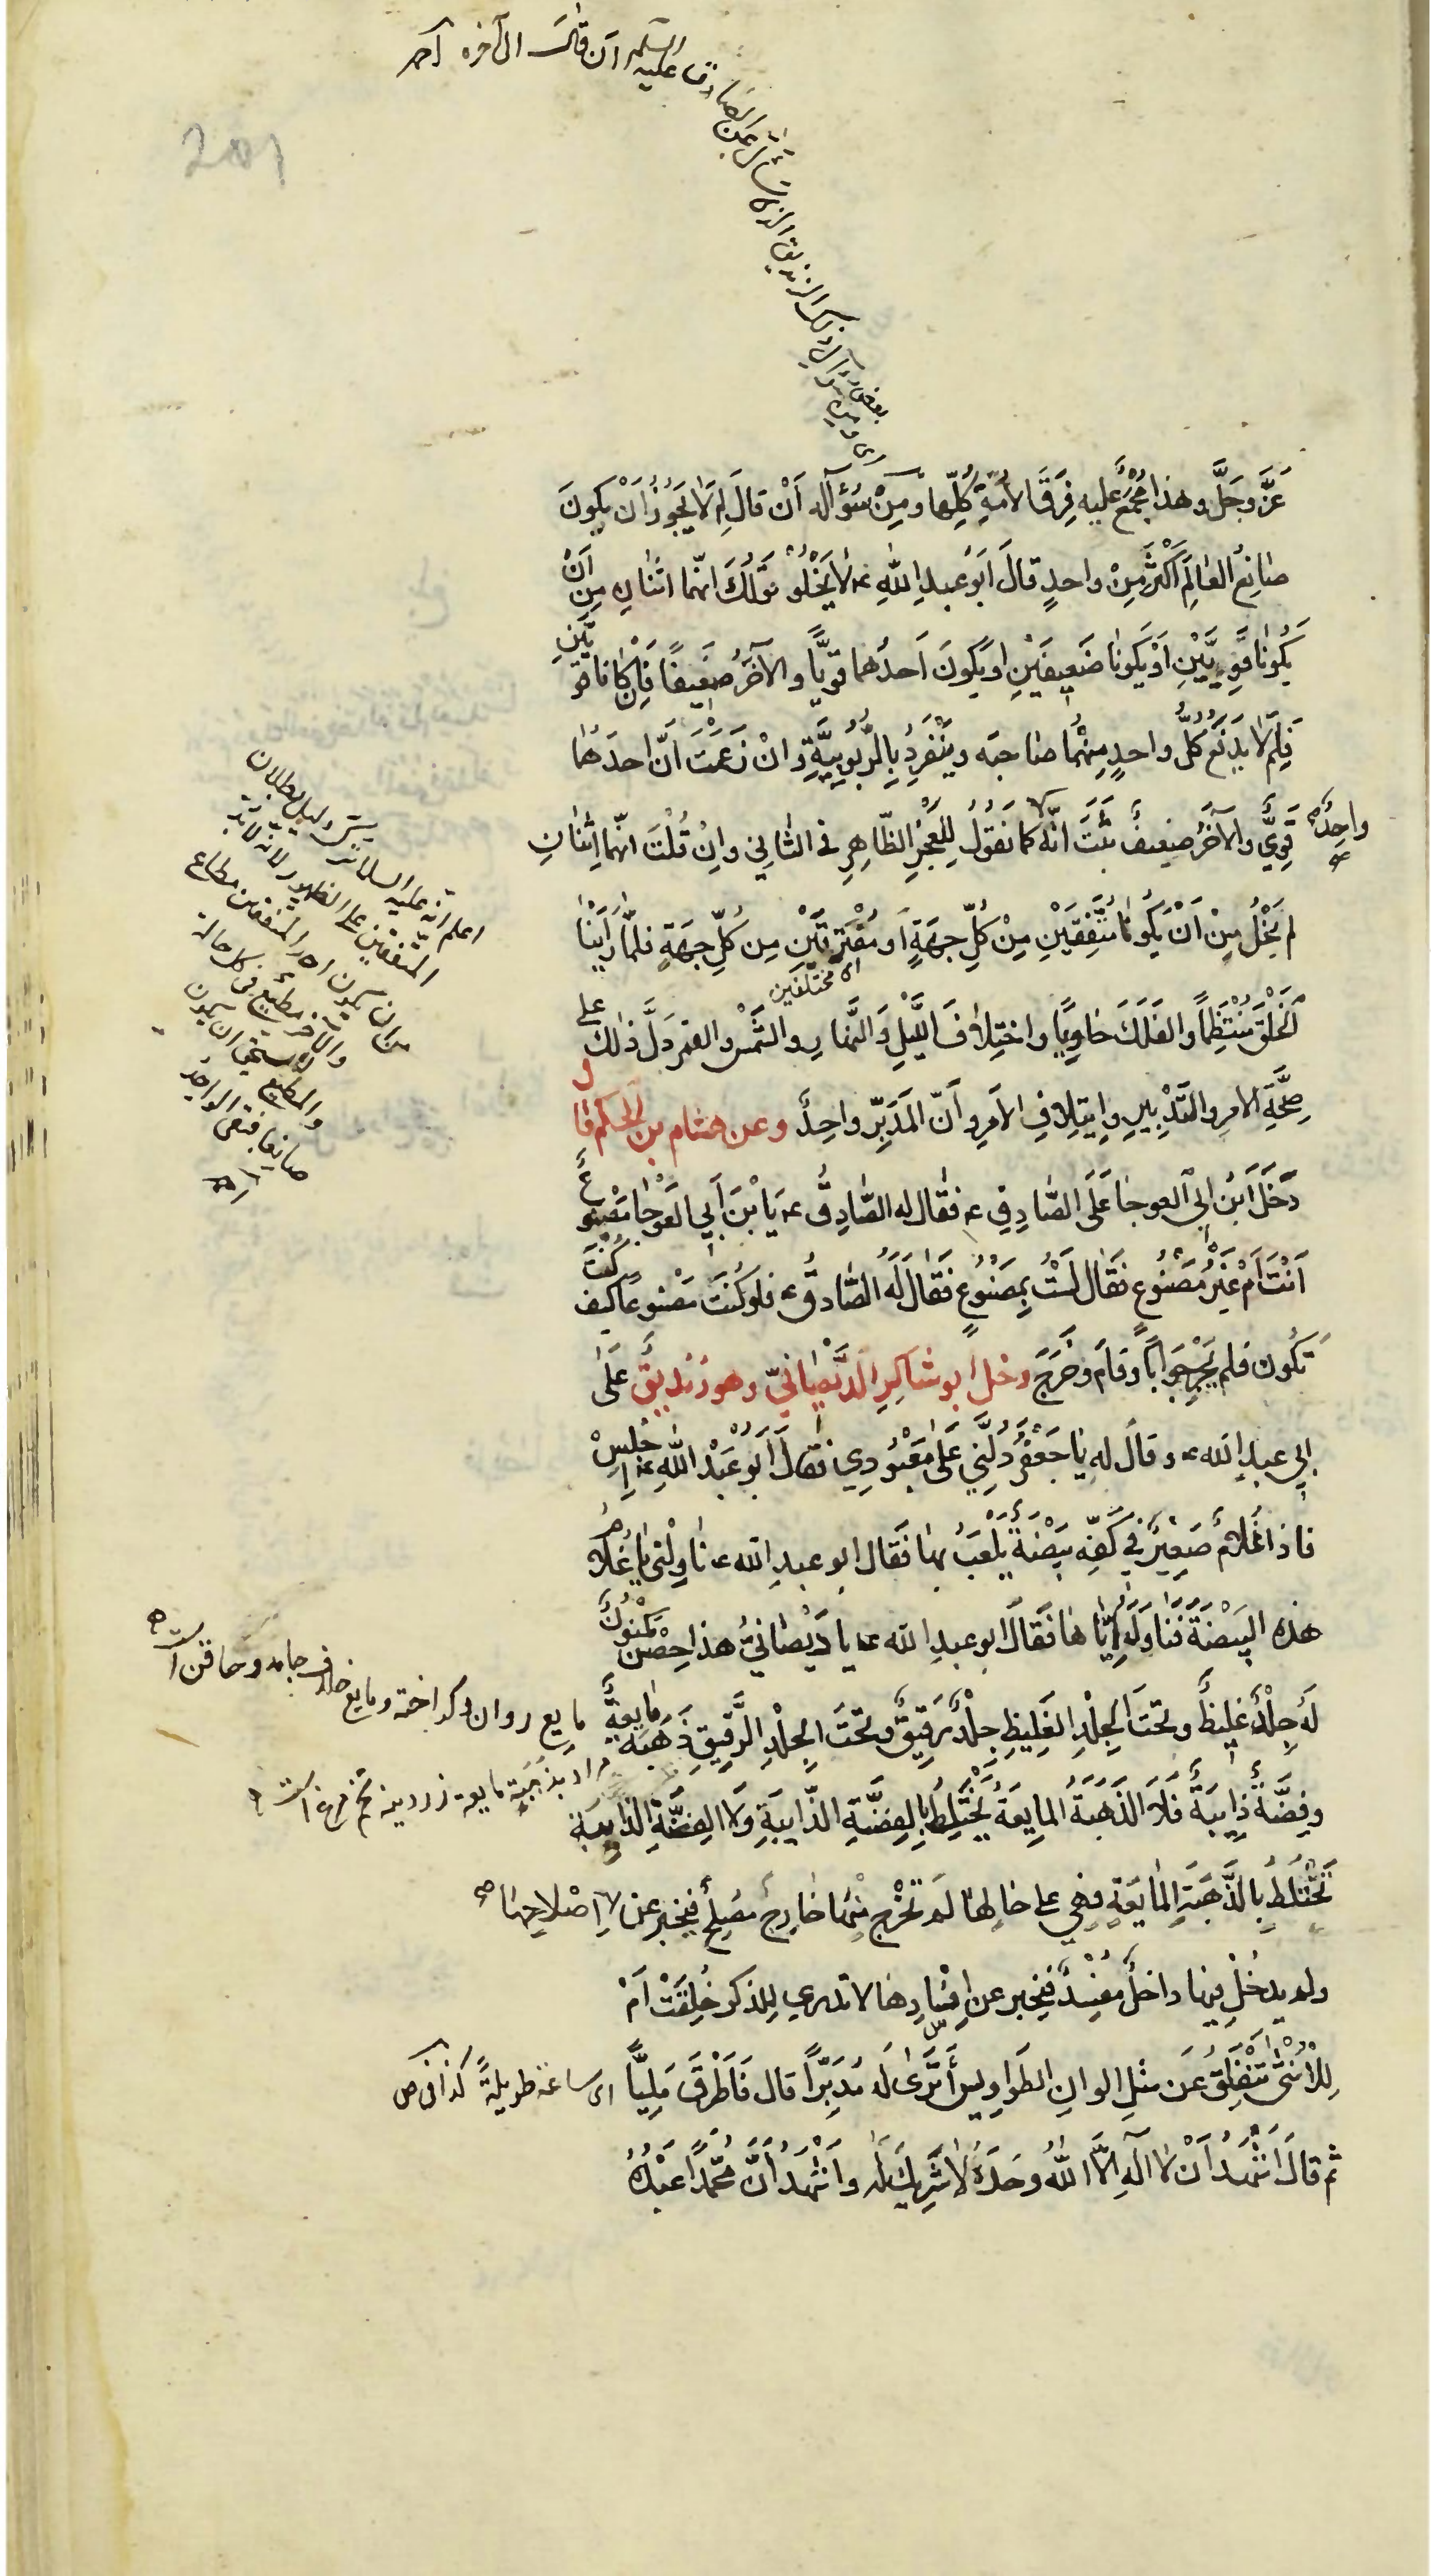 السلام ان قال الى آخره آه
ومن سؤال ذلك الزنديق الذى سأل عن الصادق عليه
عَزَّ وجَلَّ وهذا مُجْمَعٌ عليه فِرَقَ الاُمَّةِ كُلِّها ومِنْ سُؤآله اَنْ قالَ لِمَ لا يَجُوزُ اَنْ يكونَ
صانِعُ العالَمِ اَكْثَرَ مِنْ واحدٍ قالَ اَبُو عبدِ اللهِ ع لا يَخْلُو قَوْلُكَ انّهما اثنانِ مِن اَنْ
يَكُونا قَوِيَّيْنِ اَوْ يَكُونا ضَعِيفَيْنِ او يَكُونَ اَحدُهما قَوِيًّا والآخَرُ ضَعِيفًا فَاِنْ كانا قو
يَّيْنِ
فَلِمَ لا يَدْفَعُ كُلُّ واحدٍ مِنْهُما صاحبَه ويَنْفَرِدُ بِالرُّبُوبِيَّةِ وانْ زَعَمْتَ اَنَّ احدَهُما
قَوِيٌّ والآخَرُ ضعيفٌ ثَبَتَ انّهُ واحِدٌ كما نَقُولُ لِلْعَجْزِ الظّاهِرِ فى الثّانِي واِنْ قُلْتَ انّهما اثنانِ
لم يَخْلُ مِنْ اَنْ يَكُونا مُتَّفِقَيْنِ مِنْ كُلِّ جِهَةٍ او مُفْتَرِقَيْنِ مِن كُلِّ جِهَةٍ فلمّا رَاَيْنا
اى مختلفين
الْخَلْقَ مُنْتَظِمًا والفَلَكَ جاوِيًا واختِلافَ اللَّيْلِ والنَّهارِ والشَّمْسِ والقمرِ دَلَّ ذلك على
صِحَّةِ الامرِ والتَّدْبِيرِ وايتِلافِ الاَمرِ واَنَّ المُدَبِّرَ واحِدٌ وعن هشام بن الحكم قا
دَخَلَ ابْنُ ابى العوجا عَلَى الصّادِقِ ع فقال له الصّادِقُ ع يَا بْنَ اَبِي العَوْجا مَصْنُوعٌ
اَنْتَ اَمْ غَيْرُ مَصْنُوعٍ فقال لَسْتُ بِمَصْنُوعٍ فَقالَ لَهُ الصّادقُ ع فلو كُنْتَ مَصْنوعًا كيف كُنْتَ
تَكُون فلم يُحِرْ جَوابًا وقامَ وخَرَجَ دخل ابو شاكِرِ الدَّيْصانِيّ وهو زِنْدِيقٌ عَلَى
ابي عبدِ الله ع وقالَ له يا جَعْفَرُ دُلَّنِي عَلى مَعْبُودِي فَقالَ اَبُو عَبْدِ اللهِ ع اِجْلِسْ
فاذا غُلامٌ صَغِيرٌ فى كَفِّه بَيْضَةٌ يَلْعَبُ بها فَقال ابو عبدِ الله ع ناوِلْنِي يا غُلامُ
هذه البَيْضَةَ فَناوَلَهُ اِيّاها فَقالَ ابو عبدِ الله ع يا دَيْصانِيُّ هذا حِصْن مَكْنُونٌ
لَهُ جِلْدٌ غَلِيظٌ وتحتَ الْجِلْدِ الغَلِيظِ جِلْدٌ رَقِيقٌ وتحْتَ الجِلْدِ الرَّقِيقِ ذَهَبَةٌ مايِعَةٌ
وفِضَّةٌ ذايِبَةٌ فَلا الذَهَبَةُ المايِعَةُ يَخْتَلِطُ بالفِضَّةِ الذّايبَةِ وَلا الفِضَّةُ الذايبَة
تَخْتَلِطُ بِالذَّهَبَةِ المايعَةِ فهي على حالِها لَم تَخْرُج مِنْها خارِجٌ مُصْلِحٌ فيخبِر عن اِصْلاحِها
ولم يدخُلْ فيها داخلٌ مُفْسِدٌ فيُخبر عن اِفسادِها لا تدرى لِلذكرِ خُلِقَتْ اَمْ
لِلْاُنْثى تَنْفَلِقُ عَن مثلِ الوانِ الطَواوِيس اَتَرَى لَهُ مُدَبِّرًا قال فَاَطْرَقَ مَلِيًّا اى ساعة طويلةً كذا فى ص
ثم قالَ اَشْهَدُ اَنْ لا اله الَّا اللهُ وحَدَهُ لا شَرِيكَ لَهُ واَشْهَدُ اَنَّ مُحمّدًا عَبْدُهُ
اعلم انه عليه السلام لم يذكر دليل بطلان
المتفقين على الظهور لانه لا بد
من ان يكون احد المتفقين مطاع
والآخر مطيع فى كل حالة
والمطيع لا يستحق ان يكون
صانعا فبقى الواحد
مايع روان وكداخته ومايع خلاف جامد وحاقن است
مراد بذهبة مايعه زردينه تخم مرغ است